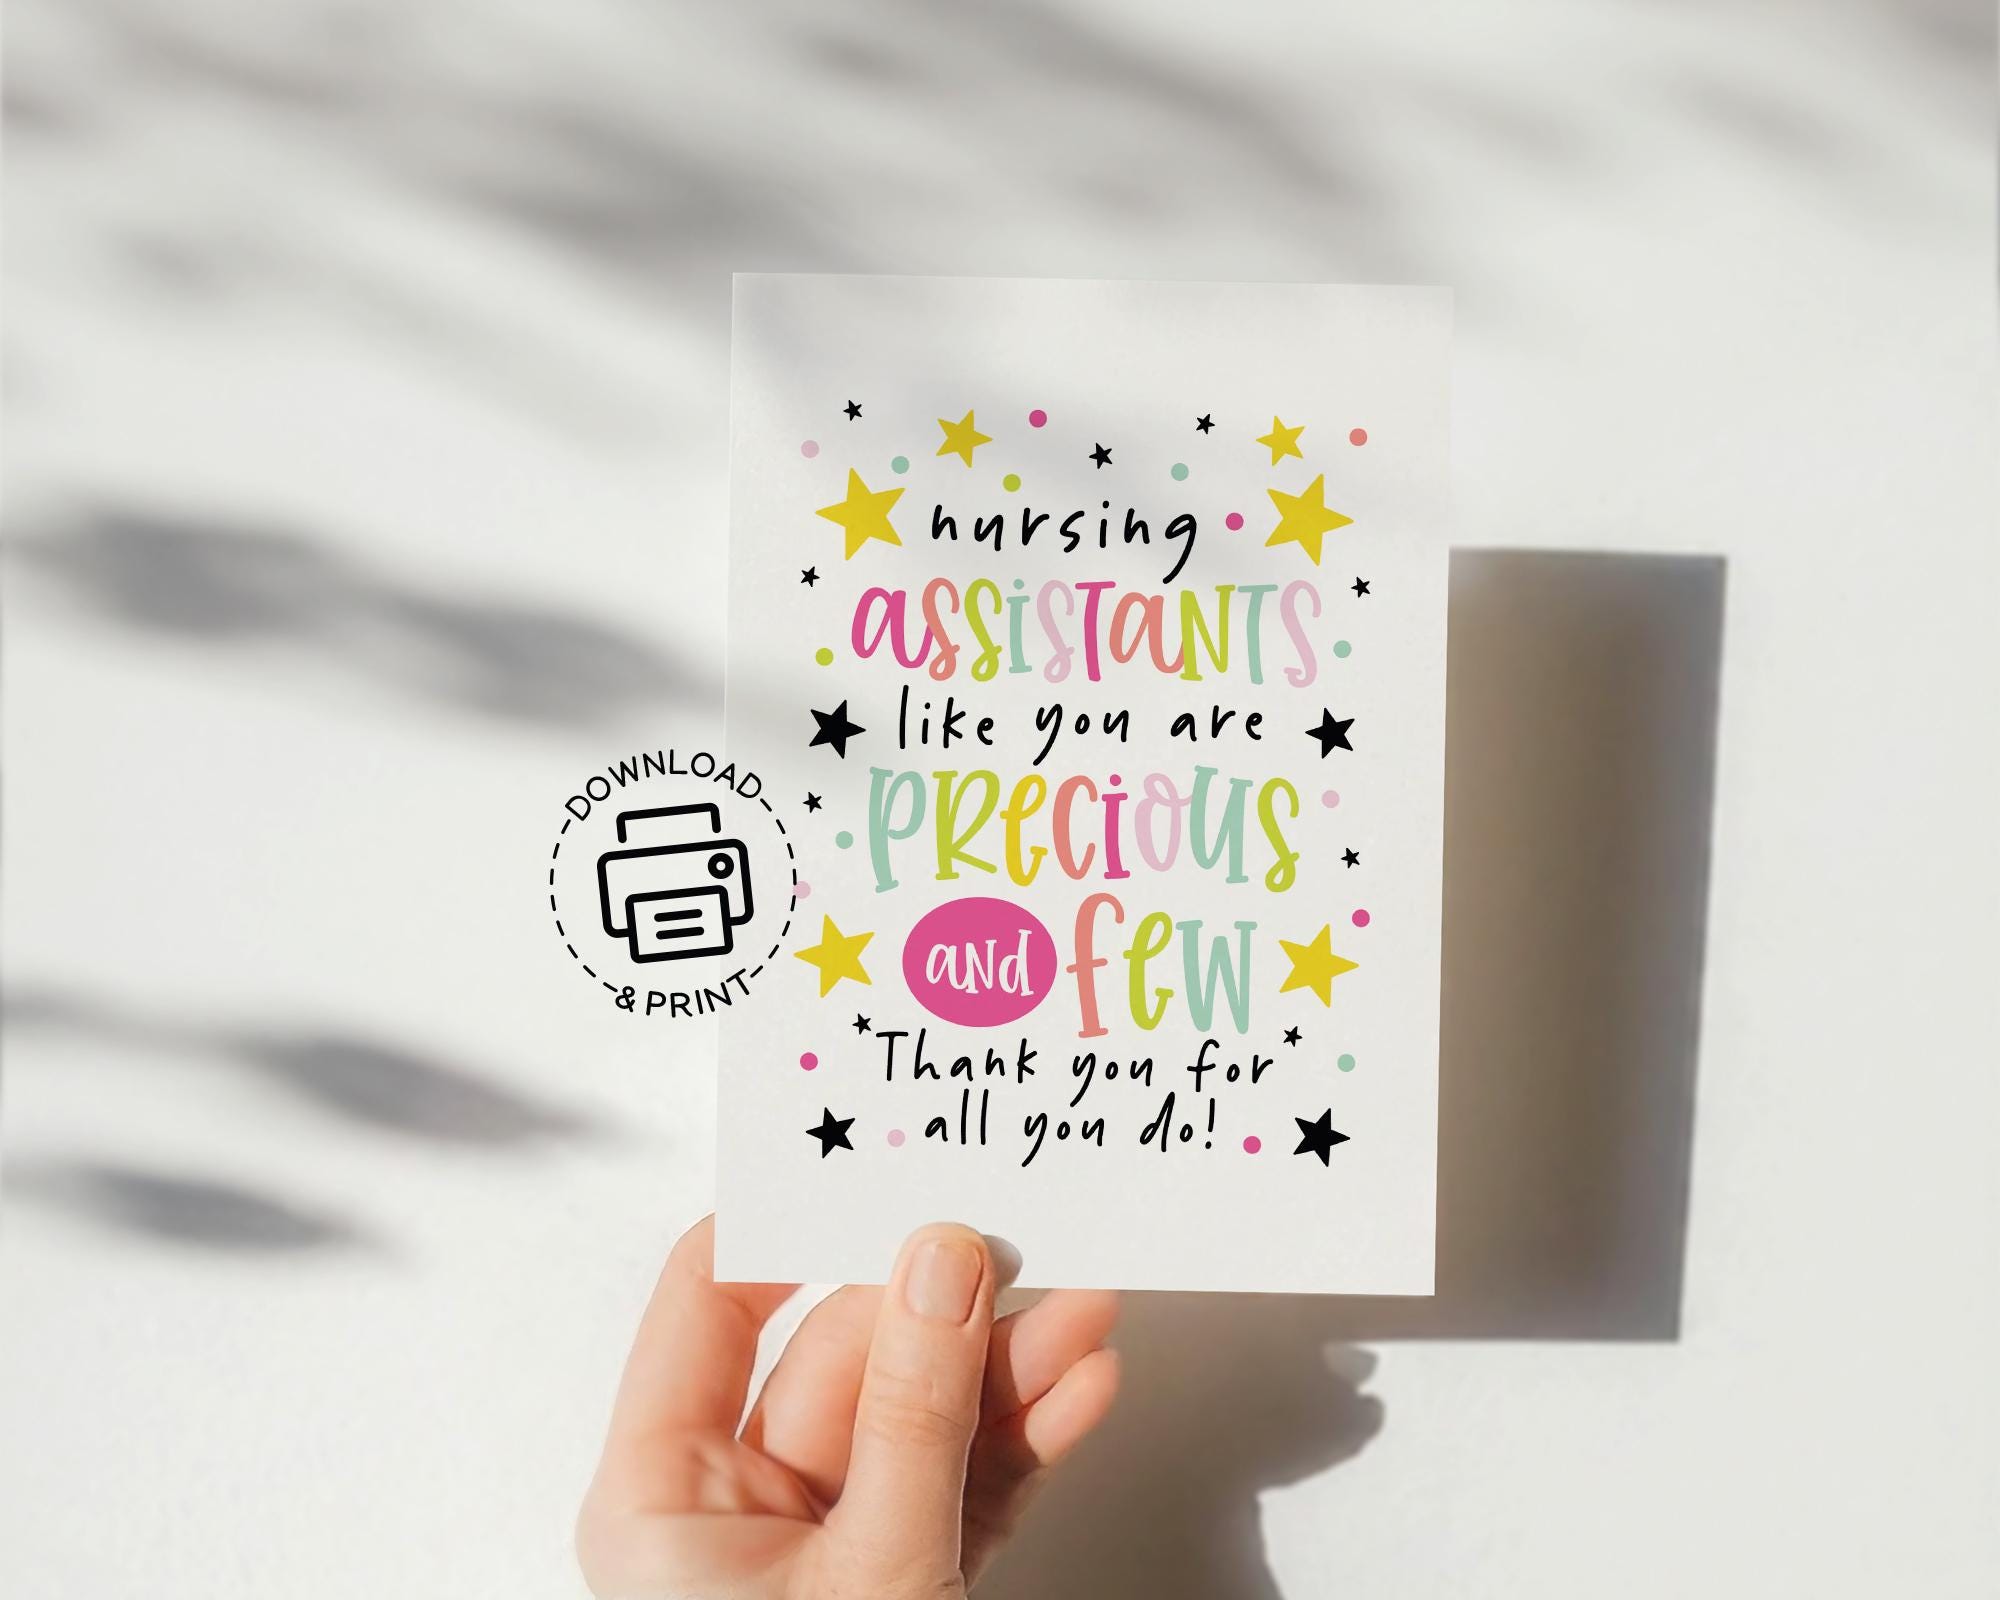 nursing
assistants
like you are
precious
and few
Thank you for
all you do!
DOWNLOAD
& PRINT